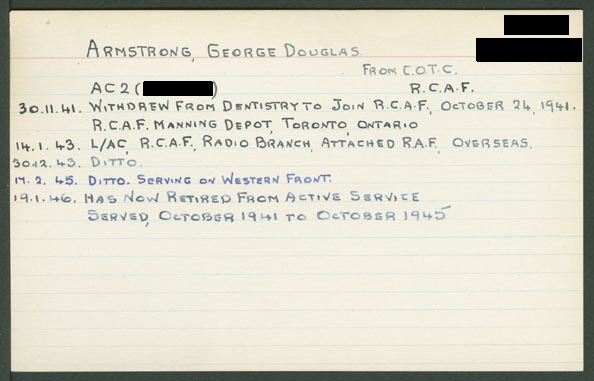 ARMSTRONG, GEORGE DOUGLAS.
FROM C.O.T.C.
AC2 ( ) R.C.A.F.
30.11.41. WITHDREW FROM DENTISTRY TO JOIN R.C.A.F., OCTOBER 24, 1941.
R.C.A.F. MANNING DEPOT, TORONTO, ONTARIO
14.1.43. L/AC, R.C.A.F., RADIO BRANCH, ATTACHED R.A.F., OVERSEAS.
30.12.43. DITTO.
17.2.45. DITTO. SERVING ON WESTERN FRONT.
19.1.46. HAS NOW RETIRED FROM ACTIVE SERVICE
SERVED, OCTOBER 1941 TO OCTOBER 1945